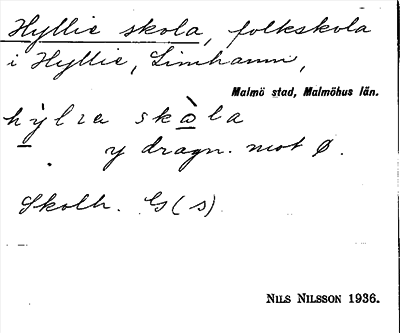 Hyllie skola, folkskola
i Hyllie, Limhamn,
Malmö stad, Malmöhus län.
hỳlɩa skòla
y dragn. mot ø.
Skolh. G(s)
NILS NILSSON 1936.